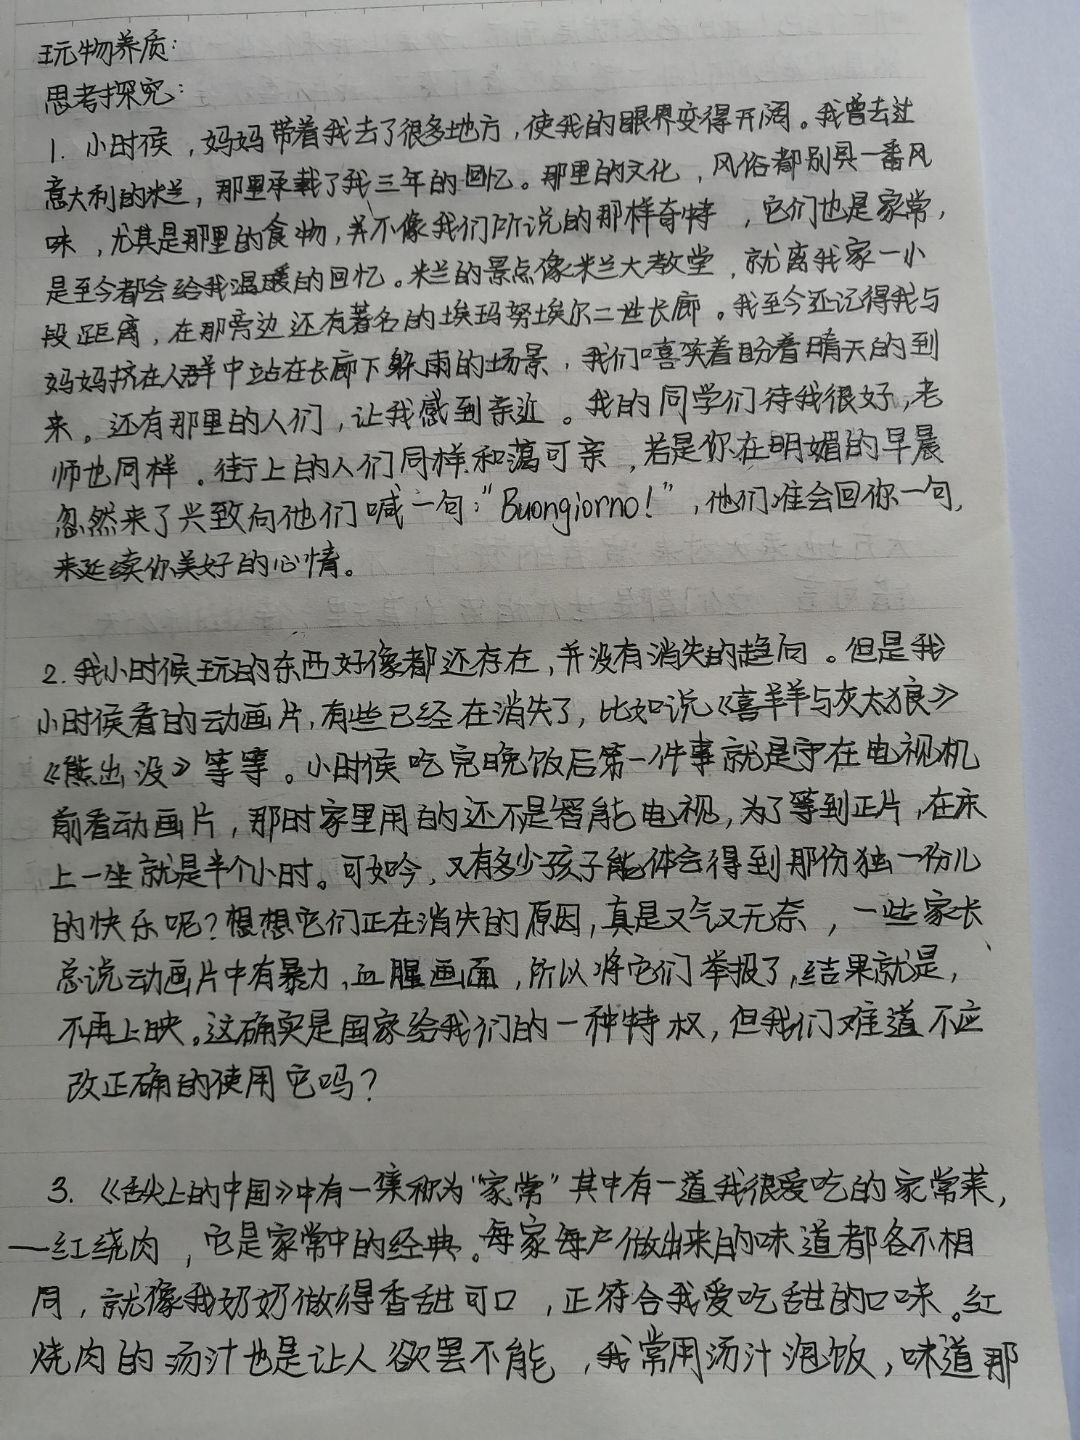 玩物养质：
思考探究：
1. 小时候，妈妈带着我去了很多地方，使我的眼界变得开阔。我曾去过
意大利的米兰，那里承载了我三年的回忆。那里的文化，风俗都别具一番风
味，尤其是那里的食物，并不像我们所说的那样奇特，它们也是家常，
是至今都会给我温暖的回忆。米兰的景点像米兰大教堂，就离我家一小
段距离，在那旁边还有著名的埃玛努埃尔二世长廊。我至今还记得我与
妈妈挤在人群中站在长廊下躲雨的场景，我们嘻笑着盼着晴天的到
来。还有那里的人们，让我感到亲近。我的同学们待我很好，老
师也同样。街上的人们同样和蔼可亲，若是你在明媚的早晨
忽然来了兴致向他们喊一句："Buongiorno！"，他们准会回你一句，
来延续你美好的心情。
2. 我小时候玩的东西好像都还存在，并没有消失的趋向。但是我
小时候看的动画片，有些已经在消失了，比如说《喜羊羊与灰太狼》
《熊出没》等等。小时候吃完晚饭后第一件事就是守在电视机
前看动画片，那时家里用的还不是智能电视，为了等到正片，在床
上一坐就是半个小时。可如吟，又有多少孩子能体会得到那份独一份儿
的快乐呢？想想它们正在消失的原因，真是又气又无奈，一些家长
总说动画片中有暴力，血腥画面，所以将它们举报了，结果就是，
不再上映。这确实是国家给我们的一种特权，但我们难道不应
改正确的使用它吗？
3.《舌尖上的中国》中有一集称为"家常"其中有一道我很爱吃的家常菜，
—红绕肉，它是家常中的经典。每家每户做出来的味道都各不相
同，就像我奶奶做得香甜可口，正符合我爱吃甜的口味。红
烧肉的汤汁也是让人欲罢不能，我常用汤汁泡饭，味道那